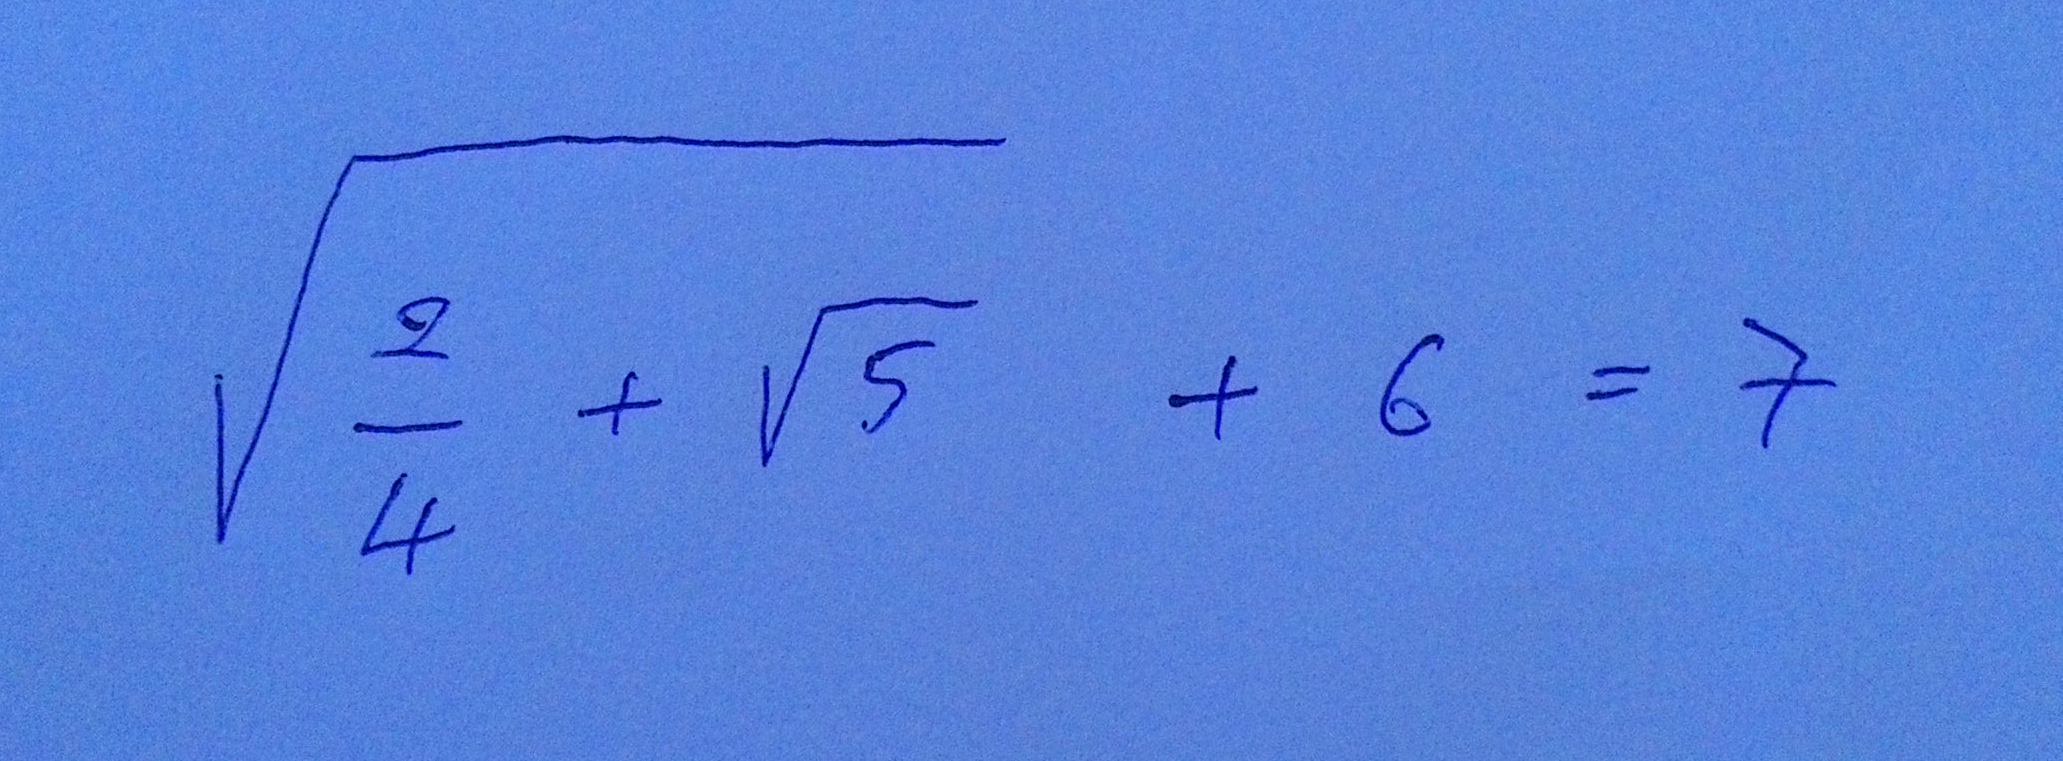 √(2/4 + √5) + 6 = 7